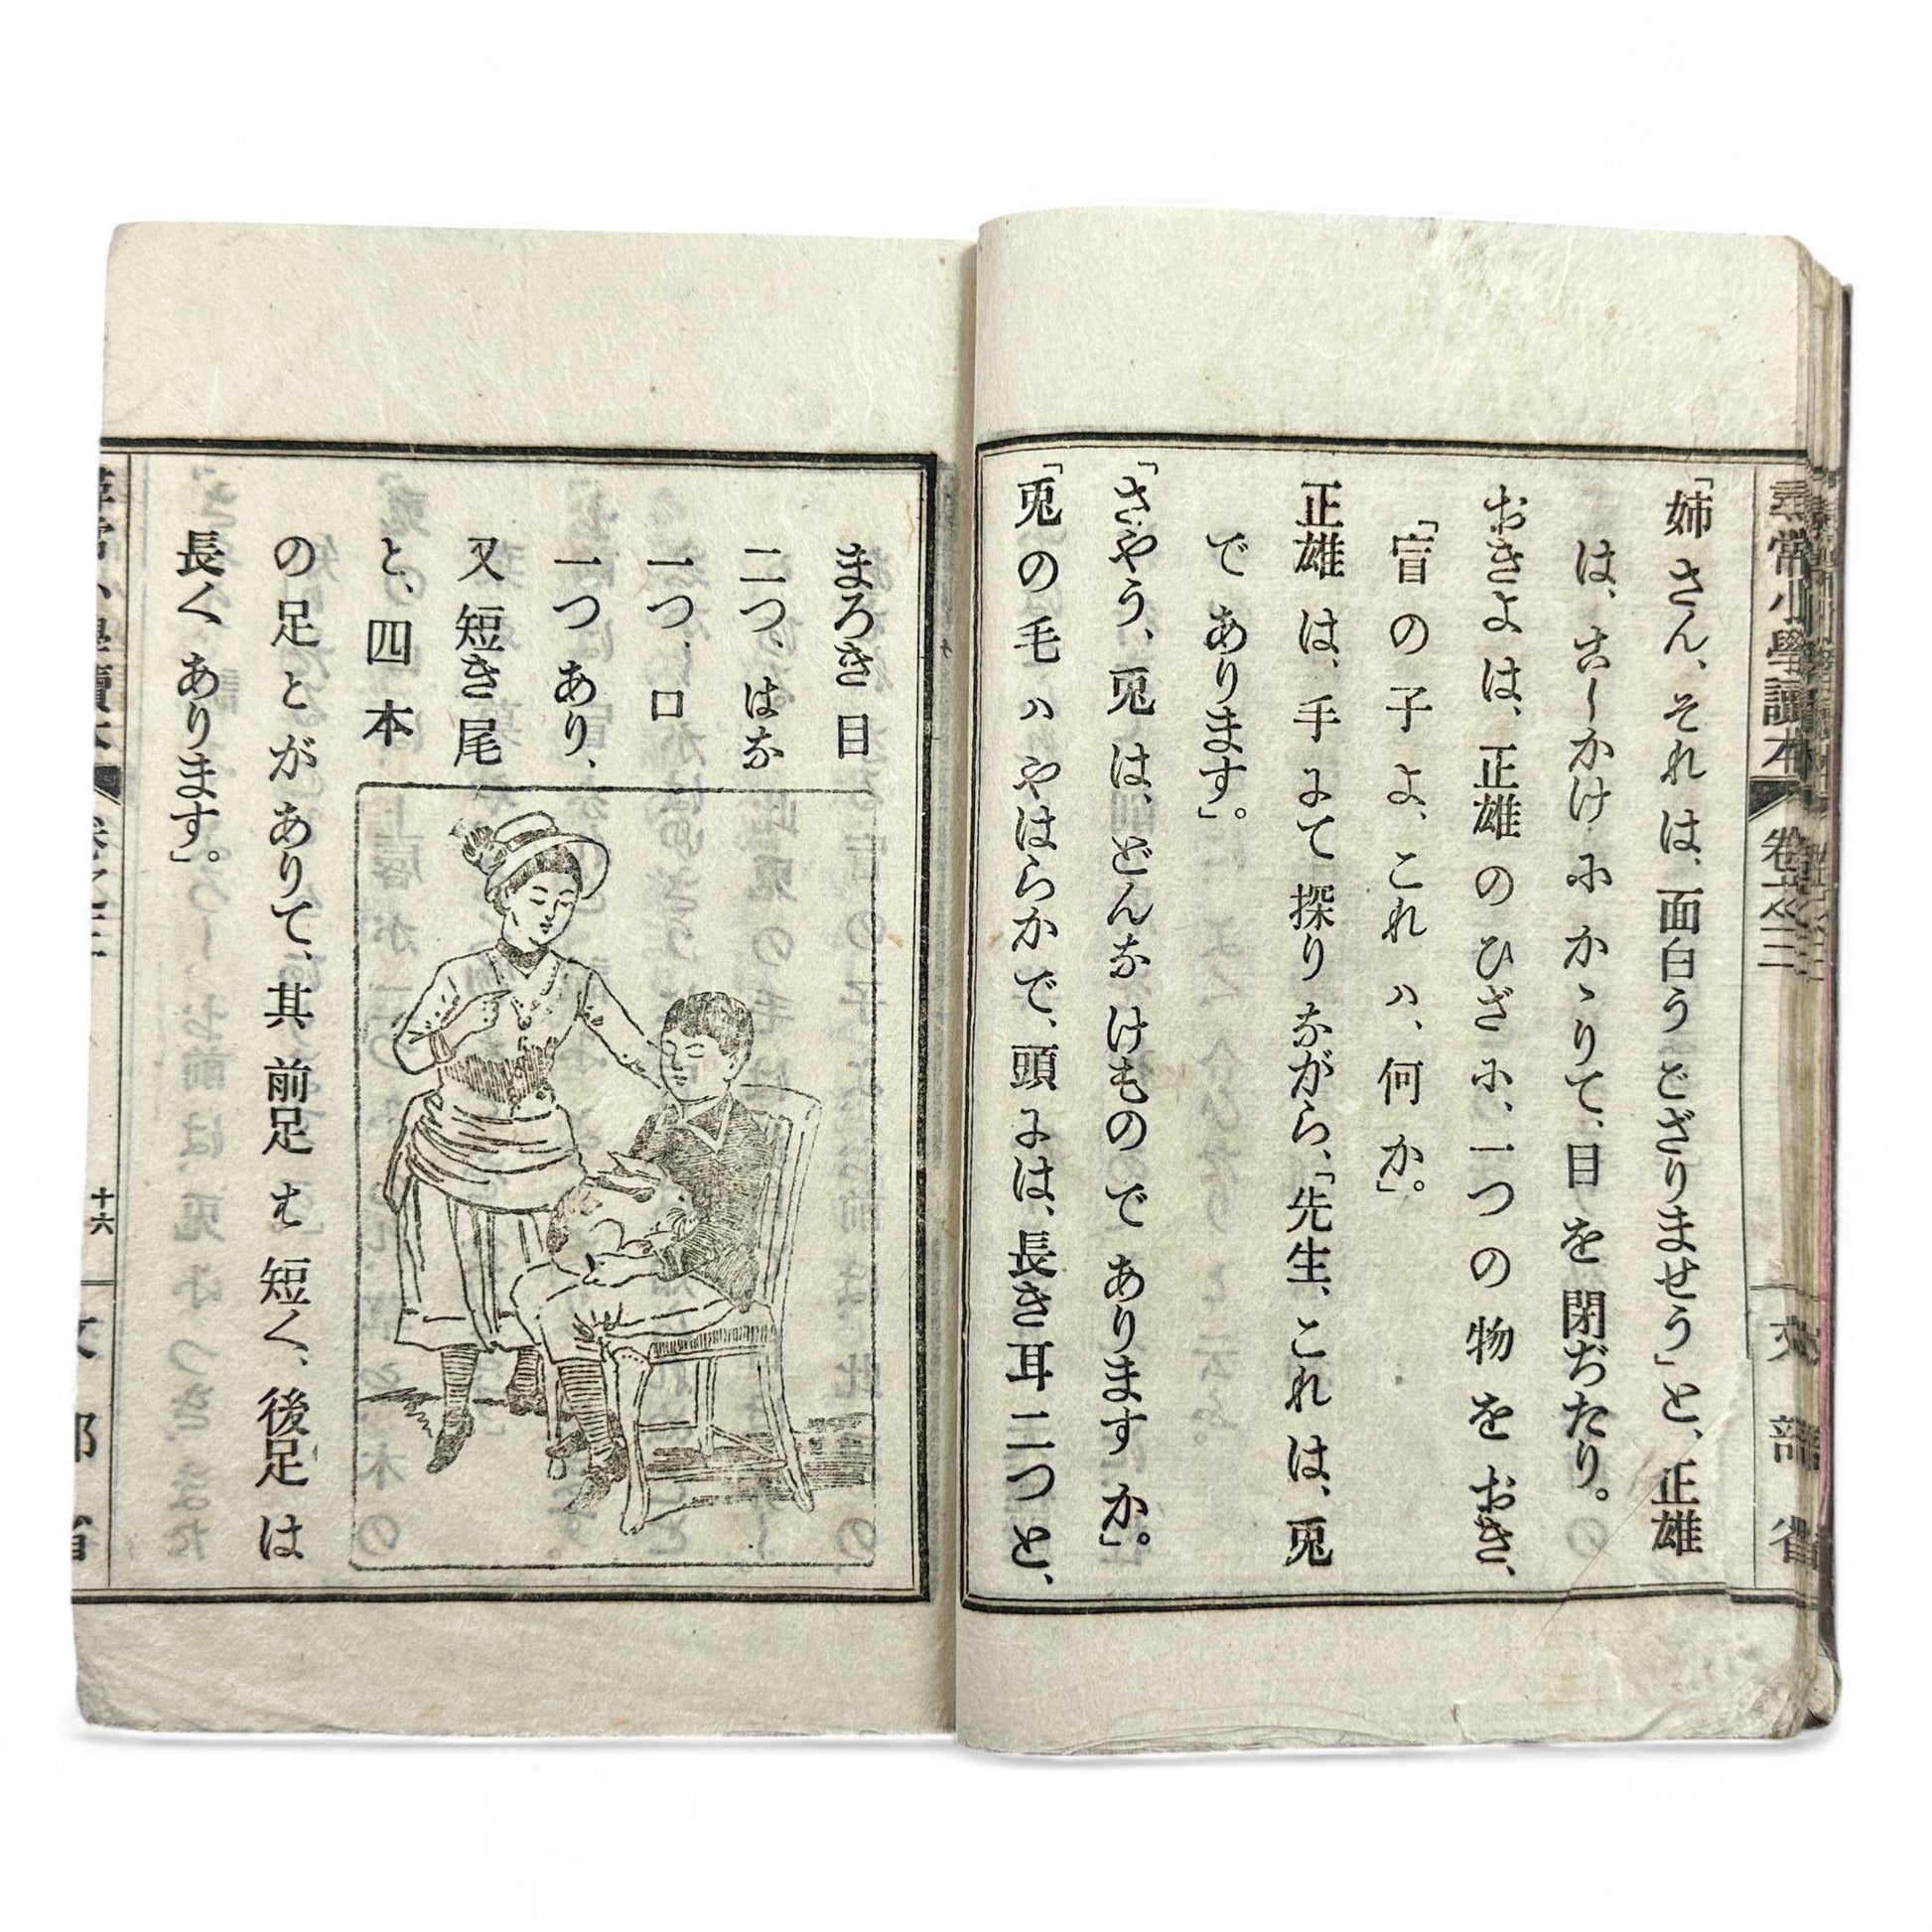 尋常小學讀本 卷之三 文部省
「姉さん、それは、面白うござりませう」と、正雄
は、古しかけ尓かゝりて、目を閉ぢたり。
おきよは、正雄のひざ尓、一つの物をおき、
「盲の子よ、これハ、何か。」
正雄は、手尓て探りながら、「先生、これは、兎
であります。」
「さやう、兎は、どんなけものでありますか。」
「兎の毛ハやはらかで、頭尓は、長き耳二つと、
まろき目
二つ、はな
一つ、口
一つあり、
又短き尾
と、四本
の足とがありて、其前足も短く、後足は
長くあります。」
十六